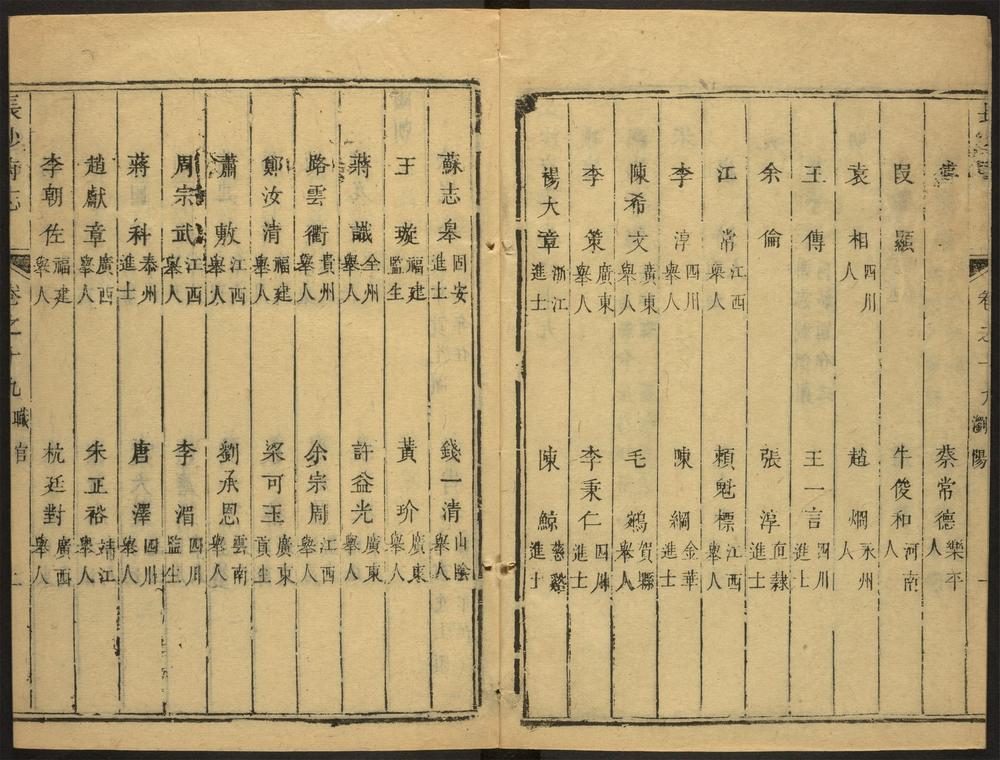 卷之十九 瀏陽
蔡常德 樂平人
段顯
牛俊和 河南人
袁相 四川人
趙烱 永州人
王傳
王一言 四川進士
余倫
張淳 直隸進士
江常 江西舉人
賴魁標 江西舉人
李淳 四川舉人
陳綱 金華進士
陳希文 廣東舉人
毛鵷 賀縣舉人
李策 廣東舉人
李秉仁 四川進士
楊大章 浙江進士
陳鯨 慈谿進士
蘇志皋 固安進士
錢一清 山陰舉人
王璇 福建監生
黃玠 廣東舉人
蔣誠 全州舉人
許益光 廣東舉人
路雲衢 貴州舉人
余宗周 江西舉人
鄭汝清 福建舉人
梁可玉 廣東貢生
蕭敷 江西舉人
劉承恩 雲南舉人
周宗武 江西舉人
李湄 四川監生
蔣科 泰州進士
唐大澤 四川舉人
趙獻章 廣西舉人
朱正裕 靖江舉人
李朝佐 福建舉人
杭廷對 廣西舉人
長沙府志 卷之十九 職官